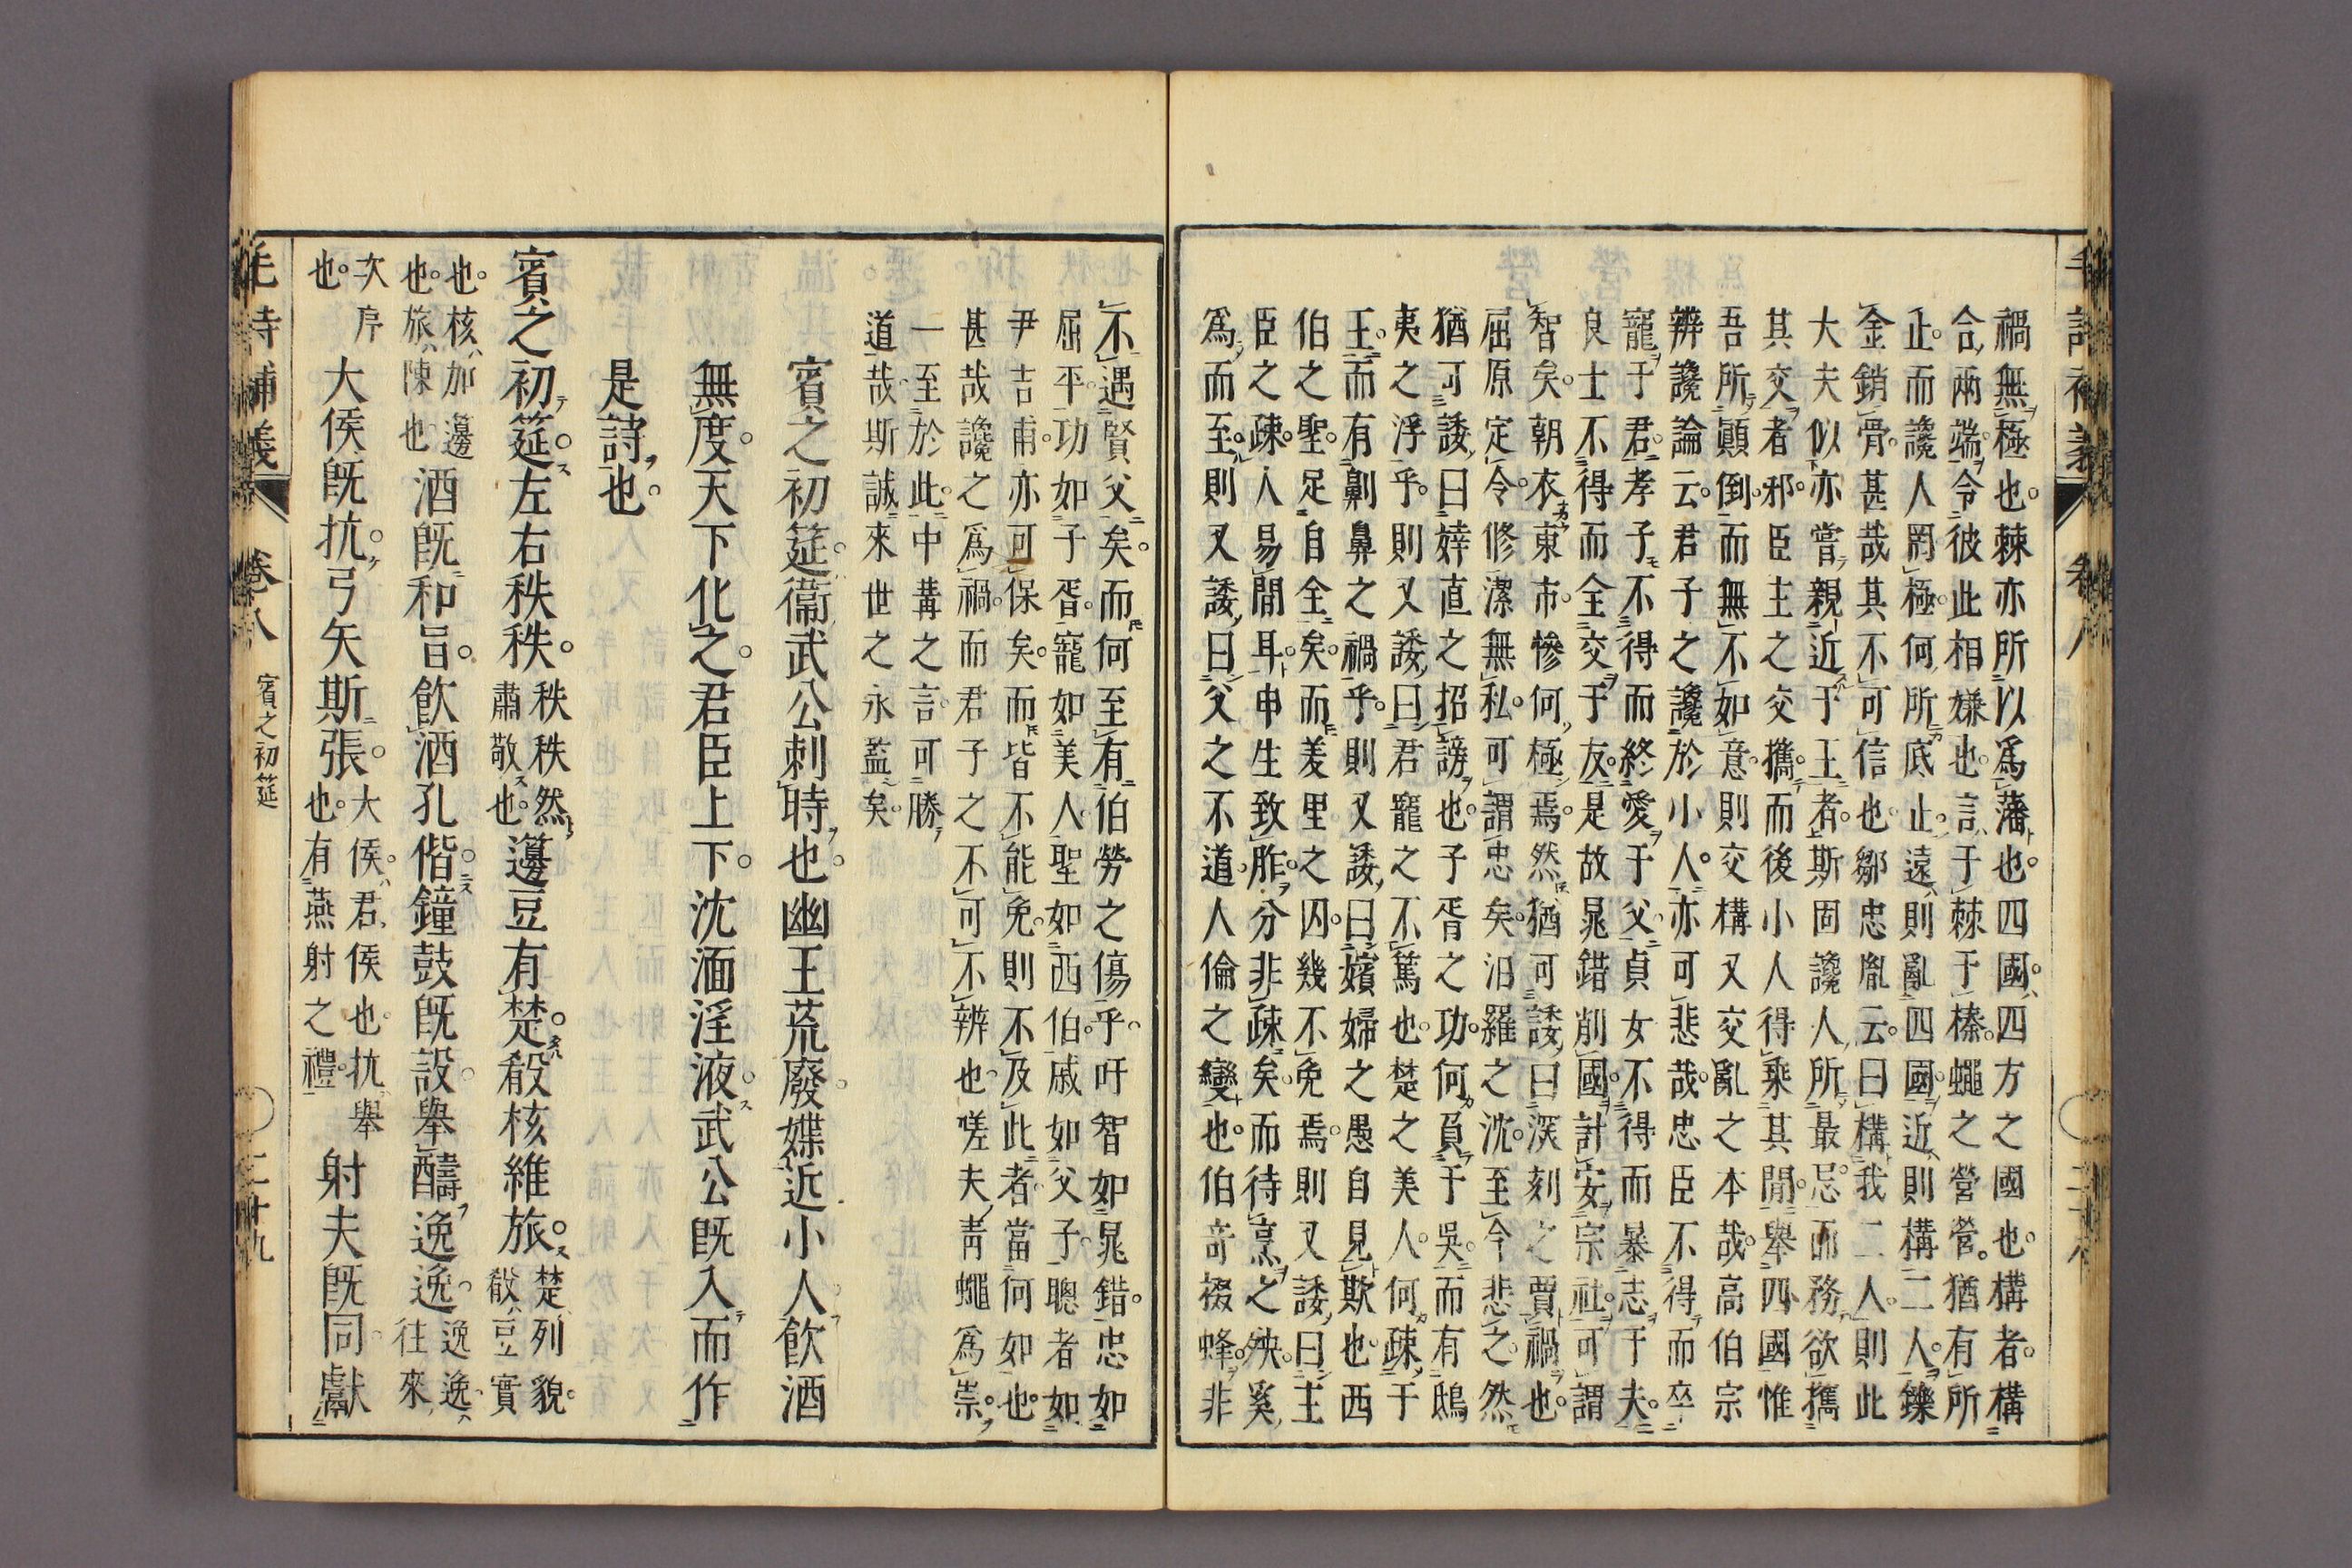 禍無極也棘亦所以為藩也四國四方之國也構者構
合兩端令彼此相嫌也言于棘于榛蠅之營營猶有所
止而讒人罔極何所底止遠則亂四國近則構二人鑠
金銷骨甚哉其不可信也鄒忠胤云曰構我二人則此
大夫似亦嘗親近于王者斯固讒人所最忌而務欲攜
其交者邪臣主之交攜而後小人得乘其閒舉四國惟
吾所顛倒而無不如意則交構又交亂之本哉高伯宗
辨讒論云君子之讒於小人亦可悲哉忠臣不得而卒
寵于君孝子不得而終愛于父貞女不得而暴志于夫
良士不得而全交于友是故晁錯削國計安宗社可謂
智矣朝衣東市慘何極焉然猶可諉曰深刻之賈禍也
屈原定令修潔無私可謂忠矣汨羅之沈至今悲之然
猶可諉曰婞直之招謗也子胥之功何負于吳而有鴟
夷之浮乎則又諉曰君寵之不篤也楚之美人何疎于
王而有劓鼻之禍乎則又諉曰嬪婦之愚自見欺也西
伯之聖足自全矣而羑里之囚幾不免焉則又諉曰主
臣之疎人易閒耳申生致胙分非疎矣而待烹之殃奚
為而至則又諉曰父之不道人倫之變也伯奇掇蜂非
不遇賢父矣而何至有伯勞之傷乎吁智如晁錯忠如
屈平功如子胥寵如美人聖如西伯戚如父子聰者如
尹吉甫亦可保矣而皆不能免則不及此者當何如也
甚哉讒之為禍而君子之不可不辨也嗟夫青蠅為祟
一至於此中冓之言可勝
道哉斯誠來世之永監矣
賓之初筵衞武公刺時也幽王荒廢媟近小人飲酒
無度天下化之君臣上下沈湎淫液武公既入而作
是詩也
賓之初筵左右秩秩秩秩然肅敬也籩豆有楚殽核維旅楚列貌殽豆實
也核加籩也旅陳也酒既和旨飲酒孔偕鐘鼓既設舉醻逸逸逸逸往來
次序也大侯既抗弓矢斯張大侯君侯也抗舉也有燕射之禮射夫既同獻
毛詩補義
卷八
賓之初筵
二十九